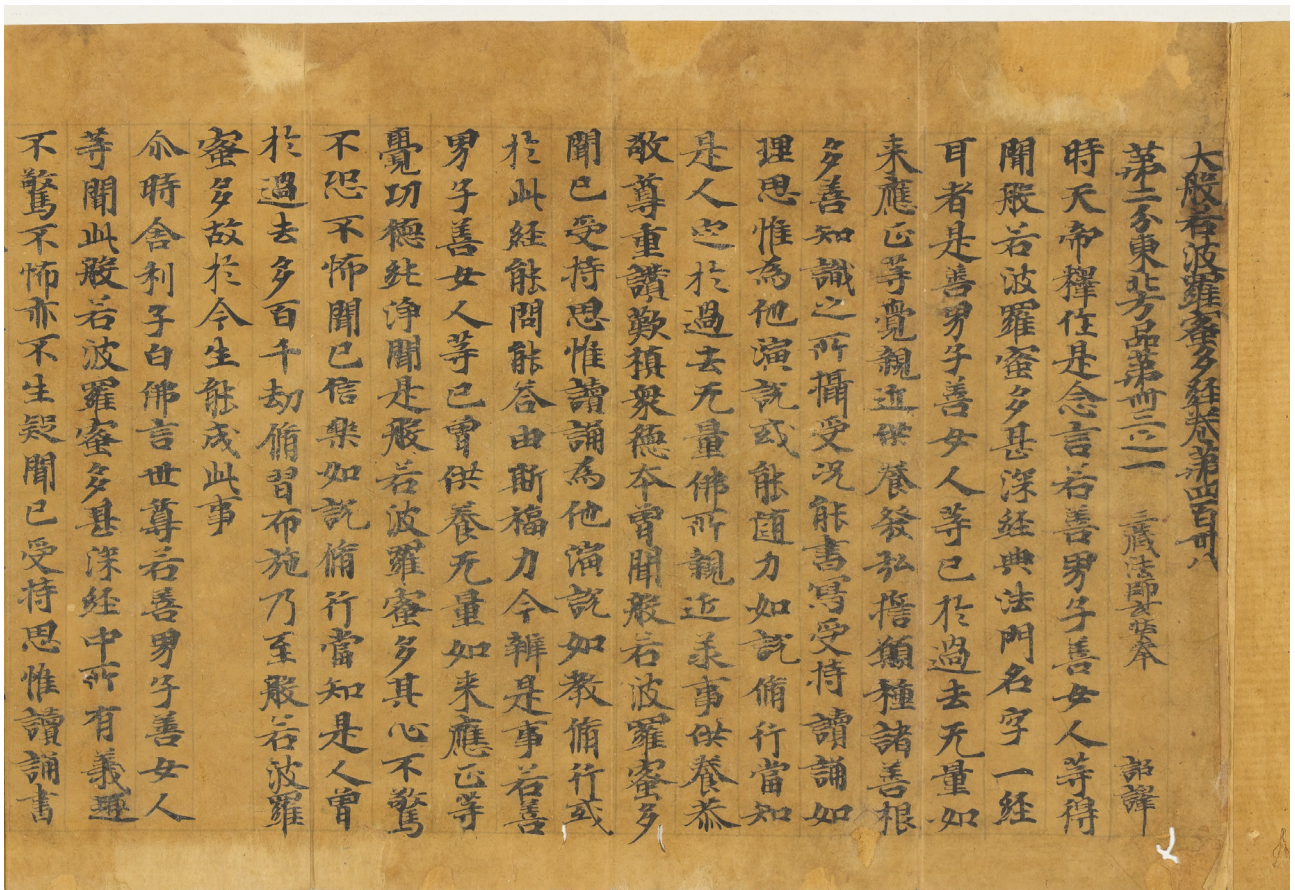 大般若波羅蜜多經卷第四百卅八
第二分東北方品第卌三之一 三藏法師玄奘奉 詔譯
時天帝釋作是念言若善男子善女人等得
聞般若波羅蜜多甚深経典法門名字一経
耳者是善男子善女人等已於過去无量如
来應正等覺親近供養發弘擔願種諸善根
多善知識之所攝受况能書寫受持讀誦如
理思惟為他演説或能随力如説脩行當知
是人定於過去无量佛所親近承事供養恭
敬尊重讃歎植衆德本曾聞般若波羅蜜多
聞已受持思惟讀誦為他演説如教脩行或
於此経能問能答由斯福力今辦是事若善
男子善女人等已曾供養无量如来應正等
覺功德純淨聞是般若波羅蜜多其心不驚
不恐不怖聞已信樂如説脩行當知是人曾
於過去多百千劫脩習布施乃至般若波羅
蜜多故於今生能成此事
尒時舎利子白佛言世尊若善男子善女人
等聞此般若波羅蜜多甚深経中所有義趣
不驚不怖亦不生疑聞已受持思惟讀誦書